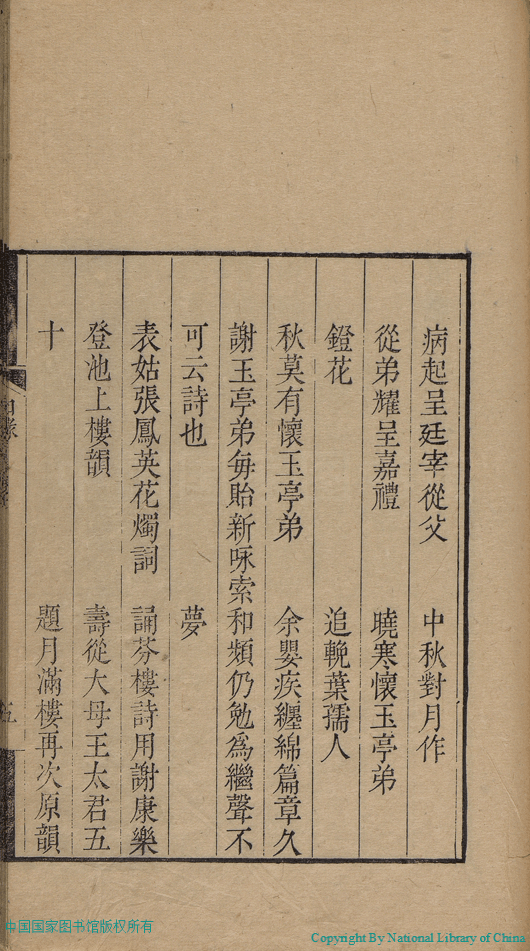 病起呈廷宰從父　中秋對月作
從弟耀呈嘉禮　曉寒懷玉亭弟
鐙花　追輓葉孺人
秋莫有懷玉亭弟　余嬰疾纏綿篇章久
謝玉亭弟每貽新咏索和頻仍勉爲繼聲不
可云詩也　夢
表姑張鳳英花燭詞　誦芬樓詩用謝康樂
登池上樓韻　壽從大母王太君五
十　題月滿樓再次原韻
目錄
五
中国国家图书馆版权所有
Copyright By National Library of China